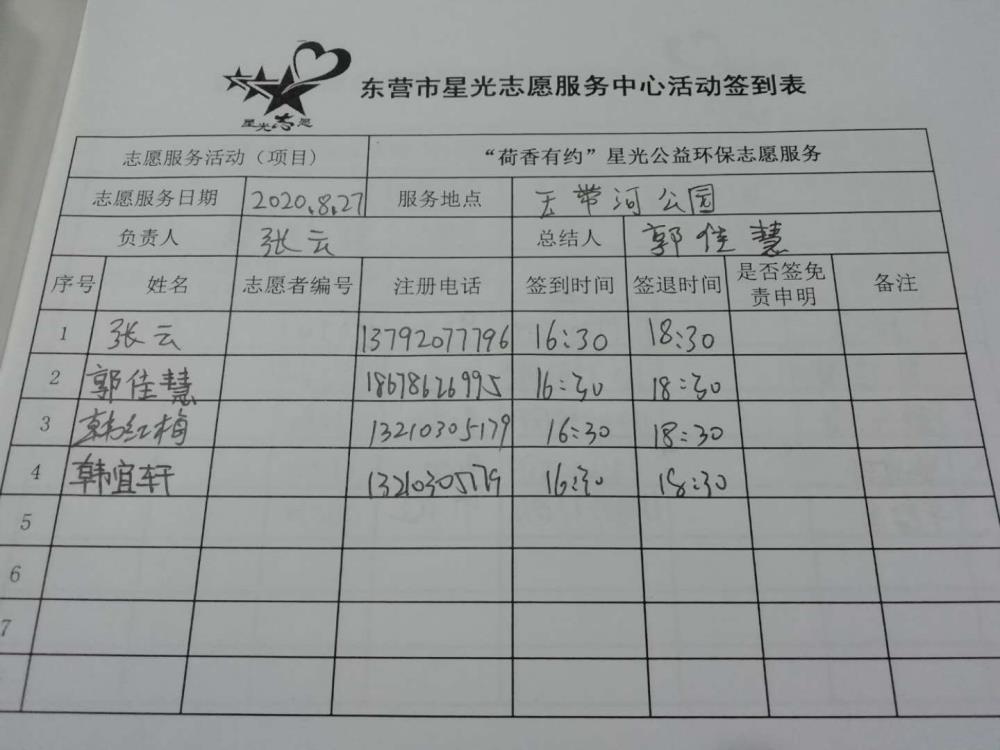 星光志愿
东营市星光志愿服务中心活动签到表
志愿服务活动（项目） “荷香有约”星光公益环保志愿服务
志愿服务日期 2020.8.27 服务地点 玉带河公园
负责人 张云 总结人 郭佳慧
序号 姓名 志愿者编号 注册电话 签到时间 签退时间 是否签免责申明 备注
1 张云 13792077796 16:30 18:30
2 郭佳慧 18678626995 16:30 18:30
3 韩红梅 13210305179 16:30 18:30
4 韩宜轩 13210305179 16:30 18:30
5
6
7